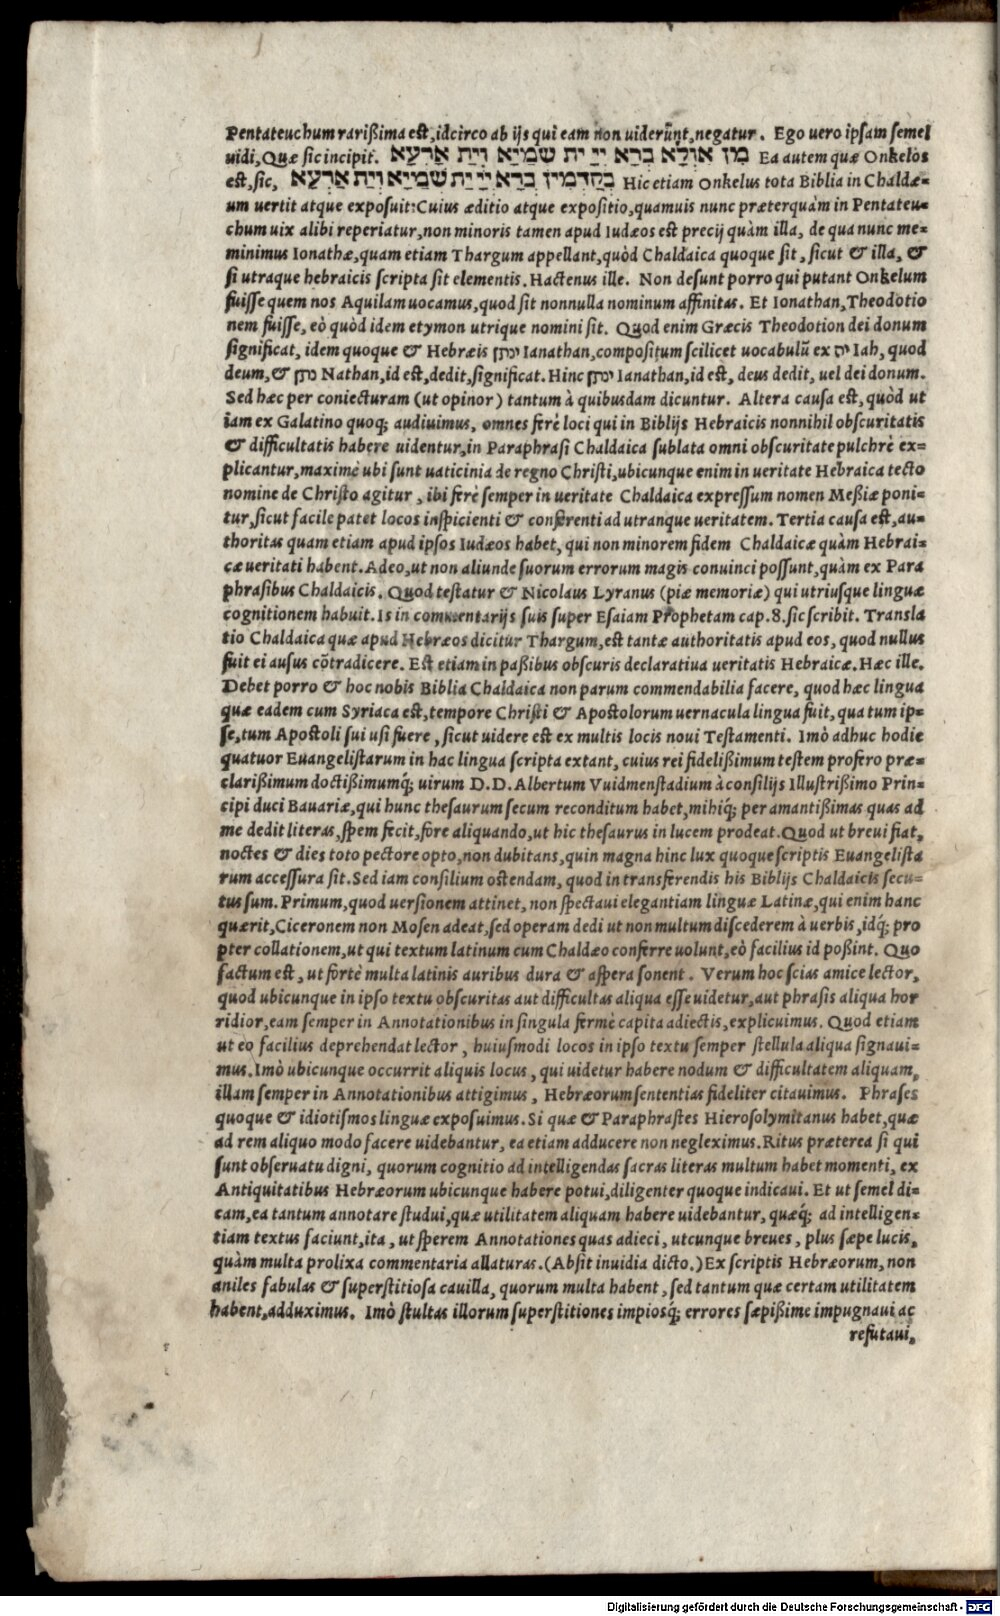 Pentateuchum rarißima est, idcirco ab ijs qui eam non uiderũnt, negatur. Ego uero ipsam semel
uidi, Quæ sic incipit. מִן אַוְלָא בְּרָא יְיָ יַת שְׁמַיָא וְיַת אַרְעָא Ea autem quæ Onkelos
est, sic, בְּקַדְמִין בְּרָא יְיָ יַת שְׁמַיָא וְיַת אַרְעָא Hic etiam Onkelus tota Biblia in Chaldæ=
um uertit atque exposuit: Cuius æditio atque expositio, quamuis nunc præterquàm in Pentateu=
chum uix alibi reperiatur, non minoris tamen apud Iudæos est precij quàm illa, de qua nunc me=
minimus Ionathæ, quam etiam Thargum appellant, quòd Chaldaica quoque sit, sicut & illa, &
si utraque hebraicis scripta sit elementis. Hactenus ille. Non desunt porro qui putant Onkelum
fuisse quem nos Aquilam uocamus, quod sit nonnulla nominum affinitas. Et Ionathan, Theodotio
nem fuisse, eò quòd idem etymon utrique nomini sit. Quod enim Græcis Theodotion dei donum
significat, idem quoque & Hebræis ינתן Ianathan, compositum scilicet uocabulũ ex יה Iah, quod
deum, & נתן Nathan, id est, dedit, significat. Hinc ינתן Ianathan, id est, deus dedit, uel dei donum.
Sed hæc per coniecturam (ut opinor) tantum à quibusdam dicuntur. Altera causa est, quòd ut
iam ex Galatino quoq; audiuimus, omnes ferè loci qui in Biblijs Hebraicis nonnihil obscuritatis
& difficultatis habere uidentur, in Paraphrasi Chaldaica sublata omni obscuritate pulchrè ex=
plicantur, maximè ubi sunt uaticinia de regno Christi, ubicunque enim in ueritate Hebraica tecto
nomine de Christo agitur, ibi ferè semper in ueritate Chaldaica expressum nomen Meßiæ poni=
tur, sicut facile patet locos inspicienti & conferenti ad utranque ueritatem. Tertia causa est, au=
thoritas quam etiam apud ipsos Iudæos habet, qui non minorem fidem Chaldaicæ quàm Hebrai=
cæ ueritati habent. Adeo, ut non aliunde suorum errorum magis conuinci possunt, quàm ex Para
phrasibus Chaldaicis. Quod testatur & Nicolaus Lyranus (piæ memoriæ) qui utriusque linguæ
cognitionem habuit. Is in commentarijs suis super Esaiam Prophetam cap. 8. sic scribit. Transla
tio Chaldaica quæ apud Hebræos dicitur Thargum, est tantæ authoritatis apud eos, quod nullus
fuit ei ausus cõtradicere. Est etiam in paßibus obscuris declaratiua ueritatis Hebraicæ. Hæc ille.
Debet porro & hoc nobis Biblia Chaldaica non parum commendabilia facere, quod hæc lingua
quæ eadem cum Syriaca est, tempore Christi & Apostolorum uernacula lingua fuit, qua tum ip=
se, tum Apostoli sui usi fuere, sicut uidere est ex multis locis noui Testamenti. Imò adhuc hodie
quatuor Euangelistarum in hac lingua scripta extant, cuius rei fidelißimum testem profero præ=
clarißimum doctißimumq́; uirum D. D. Albertum Vuidmenstadium à consilijs Illustrißimo Prin=
cipi duci Bauariæ, qui hunc thesaurum secum reconditum habet, mihiq́; per amantißimas quas ad
me dedit literas, spem fecit, fore aliquando, ut hic thesaurus in lucem prodeat. Quod ut breui fiat,
noctes & dies toto pectore opto, non dubitans, quin magna hinc lux quoque scriptis Euangelista
rum accessura sit. Sed iam consilium ostendam, quod in transferendis his Biblijs Chaldaicis secu=
tus sum. Primum, quod uersionem attinet, non spectaui elegantiam linguæ Latinæ, qui enim hanc
quærit, Ciceronem non Mosen adeat, sed operam dedi ut non multum discederem à uerbis, idq́; pro
pter collationem, ut qui textum latinum cum Chaldæo conferre uolunt, eò facilius id poßint. Quo
factum est, ut fortè multa latinis auribus dura & aspera sonent. Verum hoc scias amice lector,
quod ubicunque in ipso textu obscuritas aut difficultas aliqua esse uidetur, aut phrasis aliqua hor
ridior, eam semper in Annotationibus in singula fermè capita adiectis, explicuimus. Quod etiam
ut eo facilius deprehendat lector, huiusmodi locos in ipso textu semper stellula aliqua signaui=
mus. Imò ubicunque occurrit aliquis locus, qui uidetur habere nodum & difficultatem aliquam,
illam semper in Annotationibus attigimus, Hebræorum sententias fideliter citauimus. Phrases
quoque & idiotismos linguæ exposuimus. Si quæ & Paraphrastes Hierosolymitanus habet, quæ
ad rem aliquo modo facere uidebantur, ea etiam adducere non negleximus. Ritus præterea si qui
sunt obseruatu digni, quorum cognitio ad intelligendas sacras literas multum habet momenti, ex
Antiquitatibus Hebræorum ubicunque habere potui, diligenter quoque indicaui. Et ut semel di=
cam, ea tantum annotare studui, quæ utilitatem aliquam habere uidebantur, quæq́; ad intelligen=
tiam textus faciunt, ita, ut sperem Annotationes quas adieci, utcunque breues, plus sæpe lucis,
quàm multa prolixa commentaria allaturas. (Absit inuidia dicto.) Ex scriptis Hebræorum, non
aniles fabulas & superstitiosa cauilla, quorum multa habent, sed tantum quæ certam utilitatem
habent, adduximus. Imò stultas illorum superstitiones impiosq́; errores sæpißime impugnaui ac
refutaui,
Digitalisierung gefördert durch die Deutsche Forschungsgemeinschaft - DFG